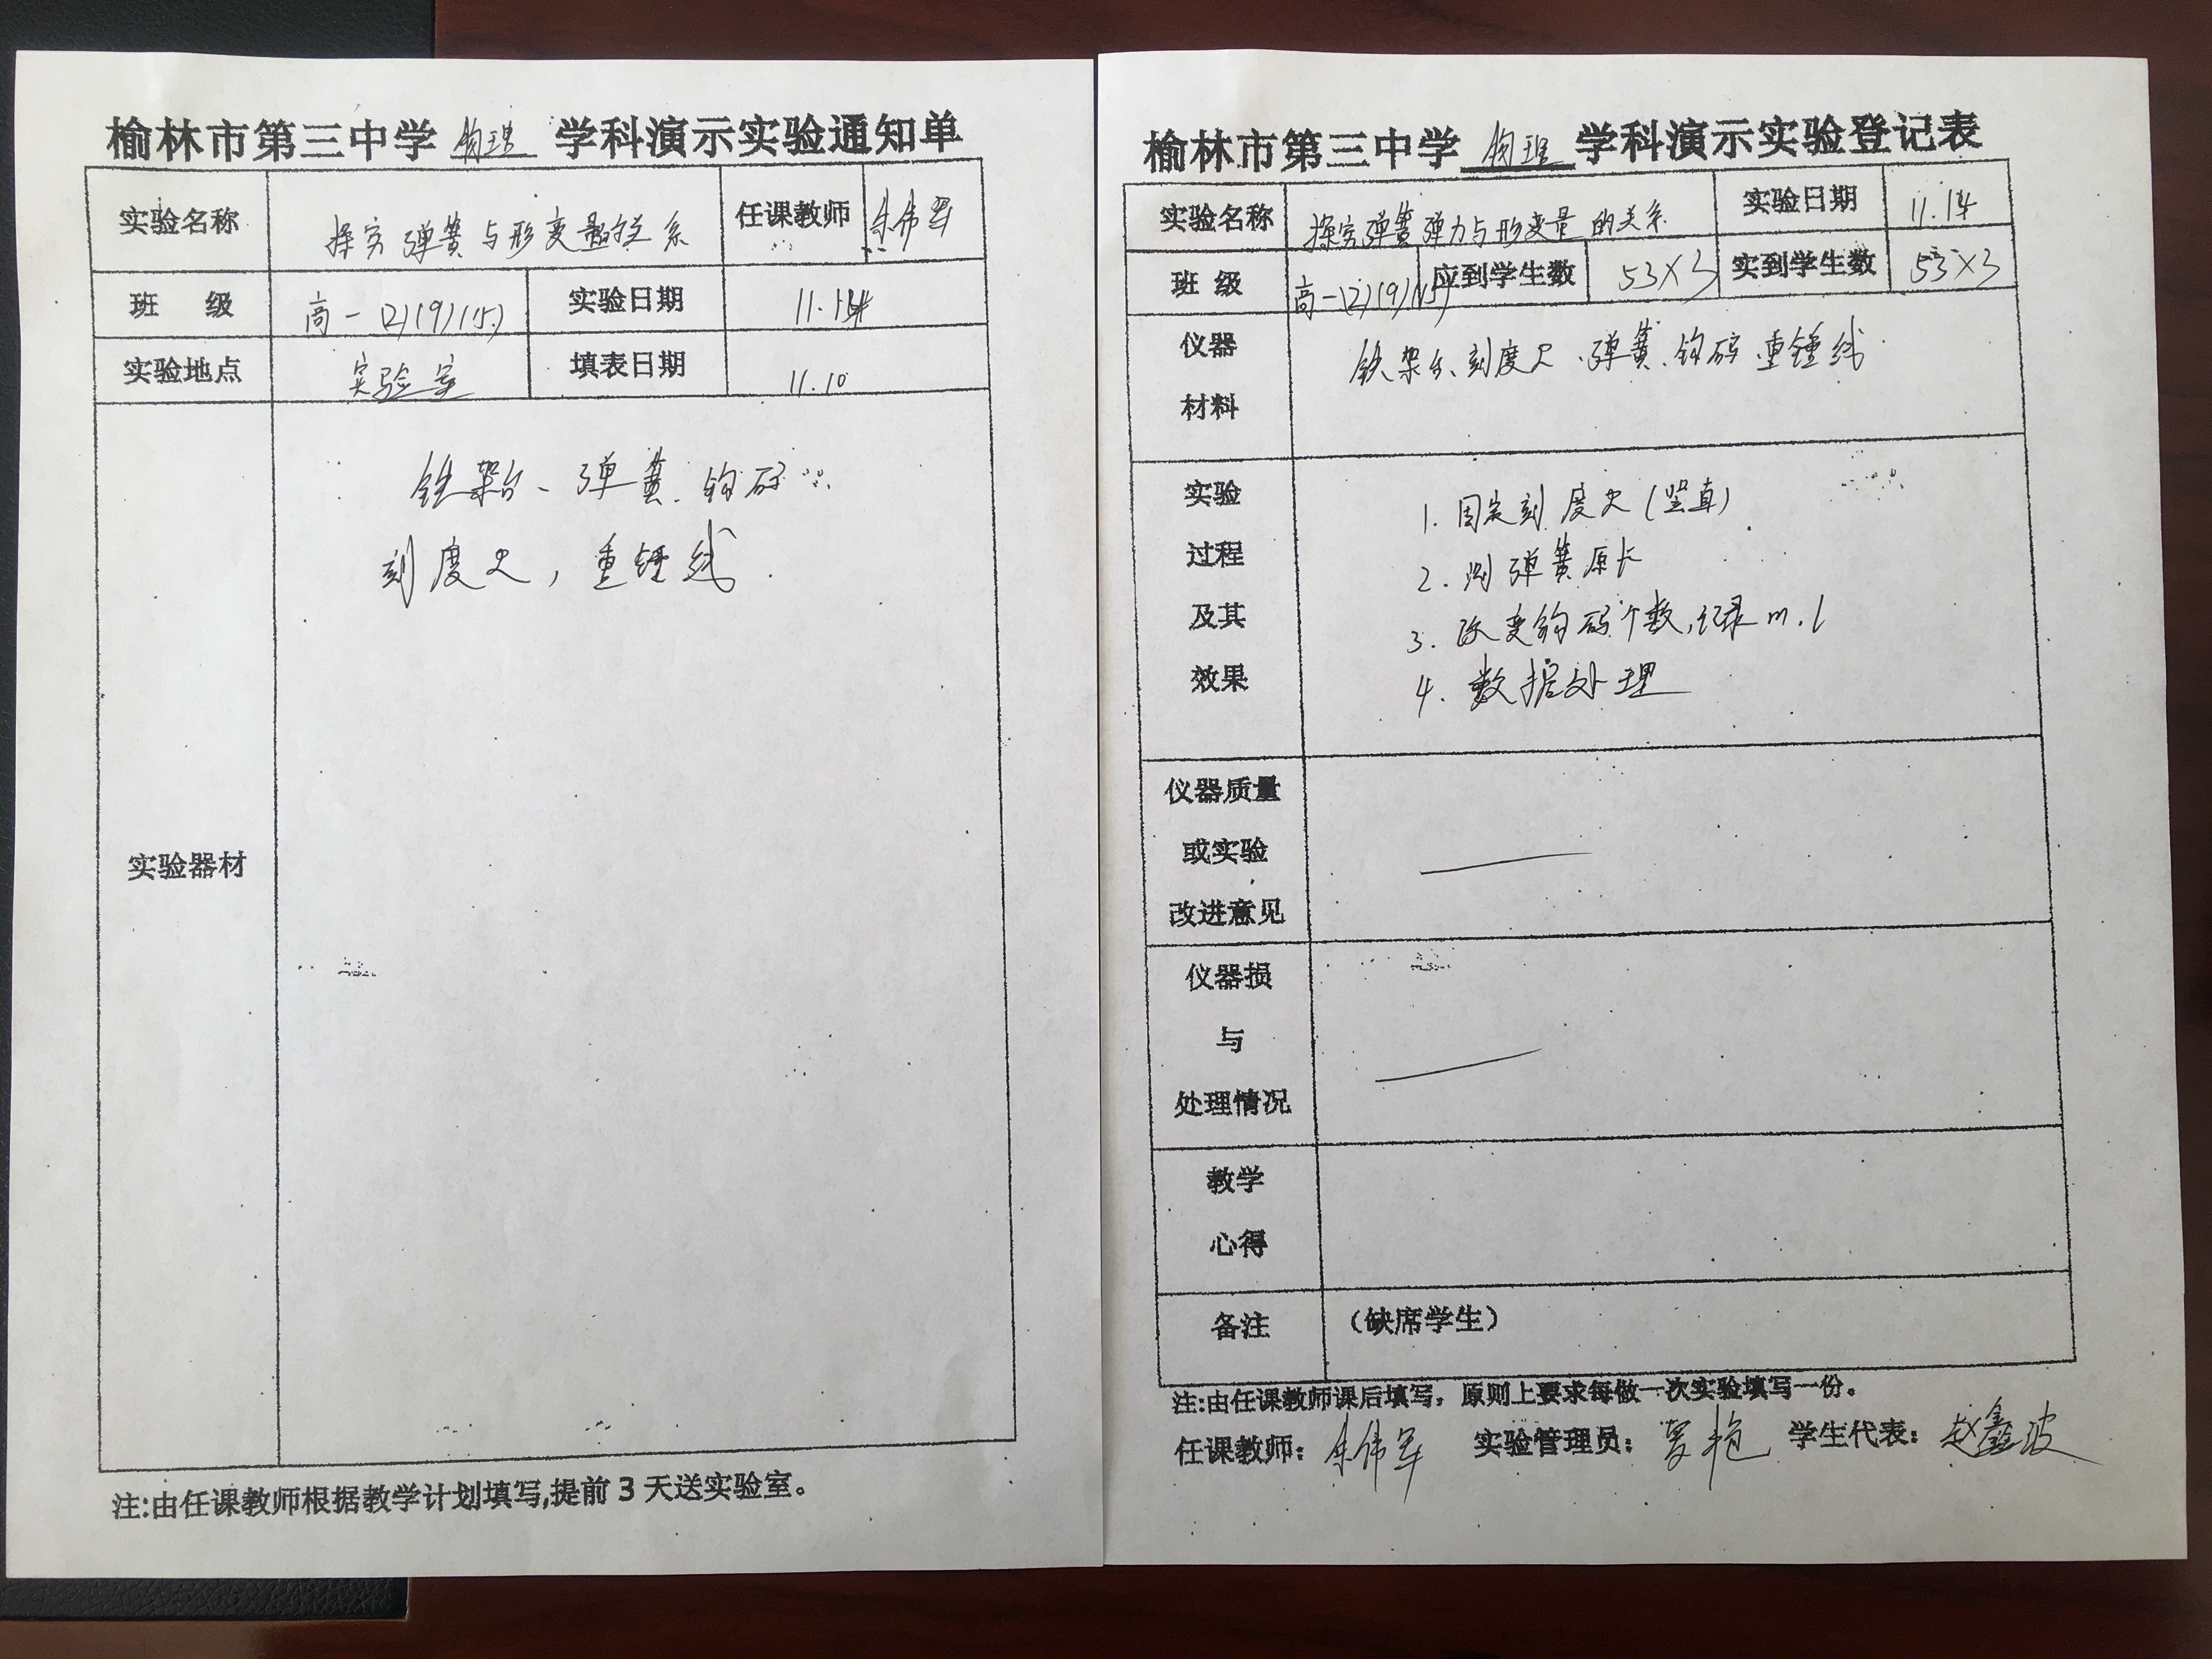 榆林市第三中学 物理 学科演示实验通知单
实验名称 探究弹簧与形变量的关系 任课教师 伟军
班 级 高一(2)(9)(15) 实验日期 11.14
实验地点 实验室 填表日期 11.10
实验器材
铁架台、弹簧、钩码
刻度尺,重锤线.
注:由任课教师根据教学计划填写,提前3天送实验室。
榆林市第三中学 物理 学科演示实验登记表
实验名称 探究弹簧弹力与形变量的关系 实验日期 11.14
班 级 高一(2)(9)(15) 应到学生数 53×3 实到学生数 53×3
仪器
材料
铁架台、刻度尺、弹簧、钩码、重锤线
实验
过程
及其
效果
1. 固定刻度尺(竖直)
2. 测弹簧原长
3. 改变钩码个数,记录m.l
4. 数据处理
仪器质量
或实验
改进意见
仪器损
与
处理情况
教学
心得
备注 (缺席学生)
注:由任课教师课后填写,原则上要求每做一次实验填写一份。
任课教师: 伟军 实验管理员: 艳 学生代表: 赵鑫波